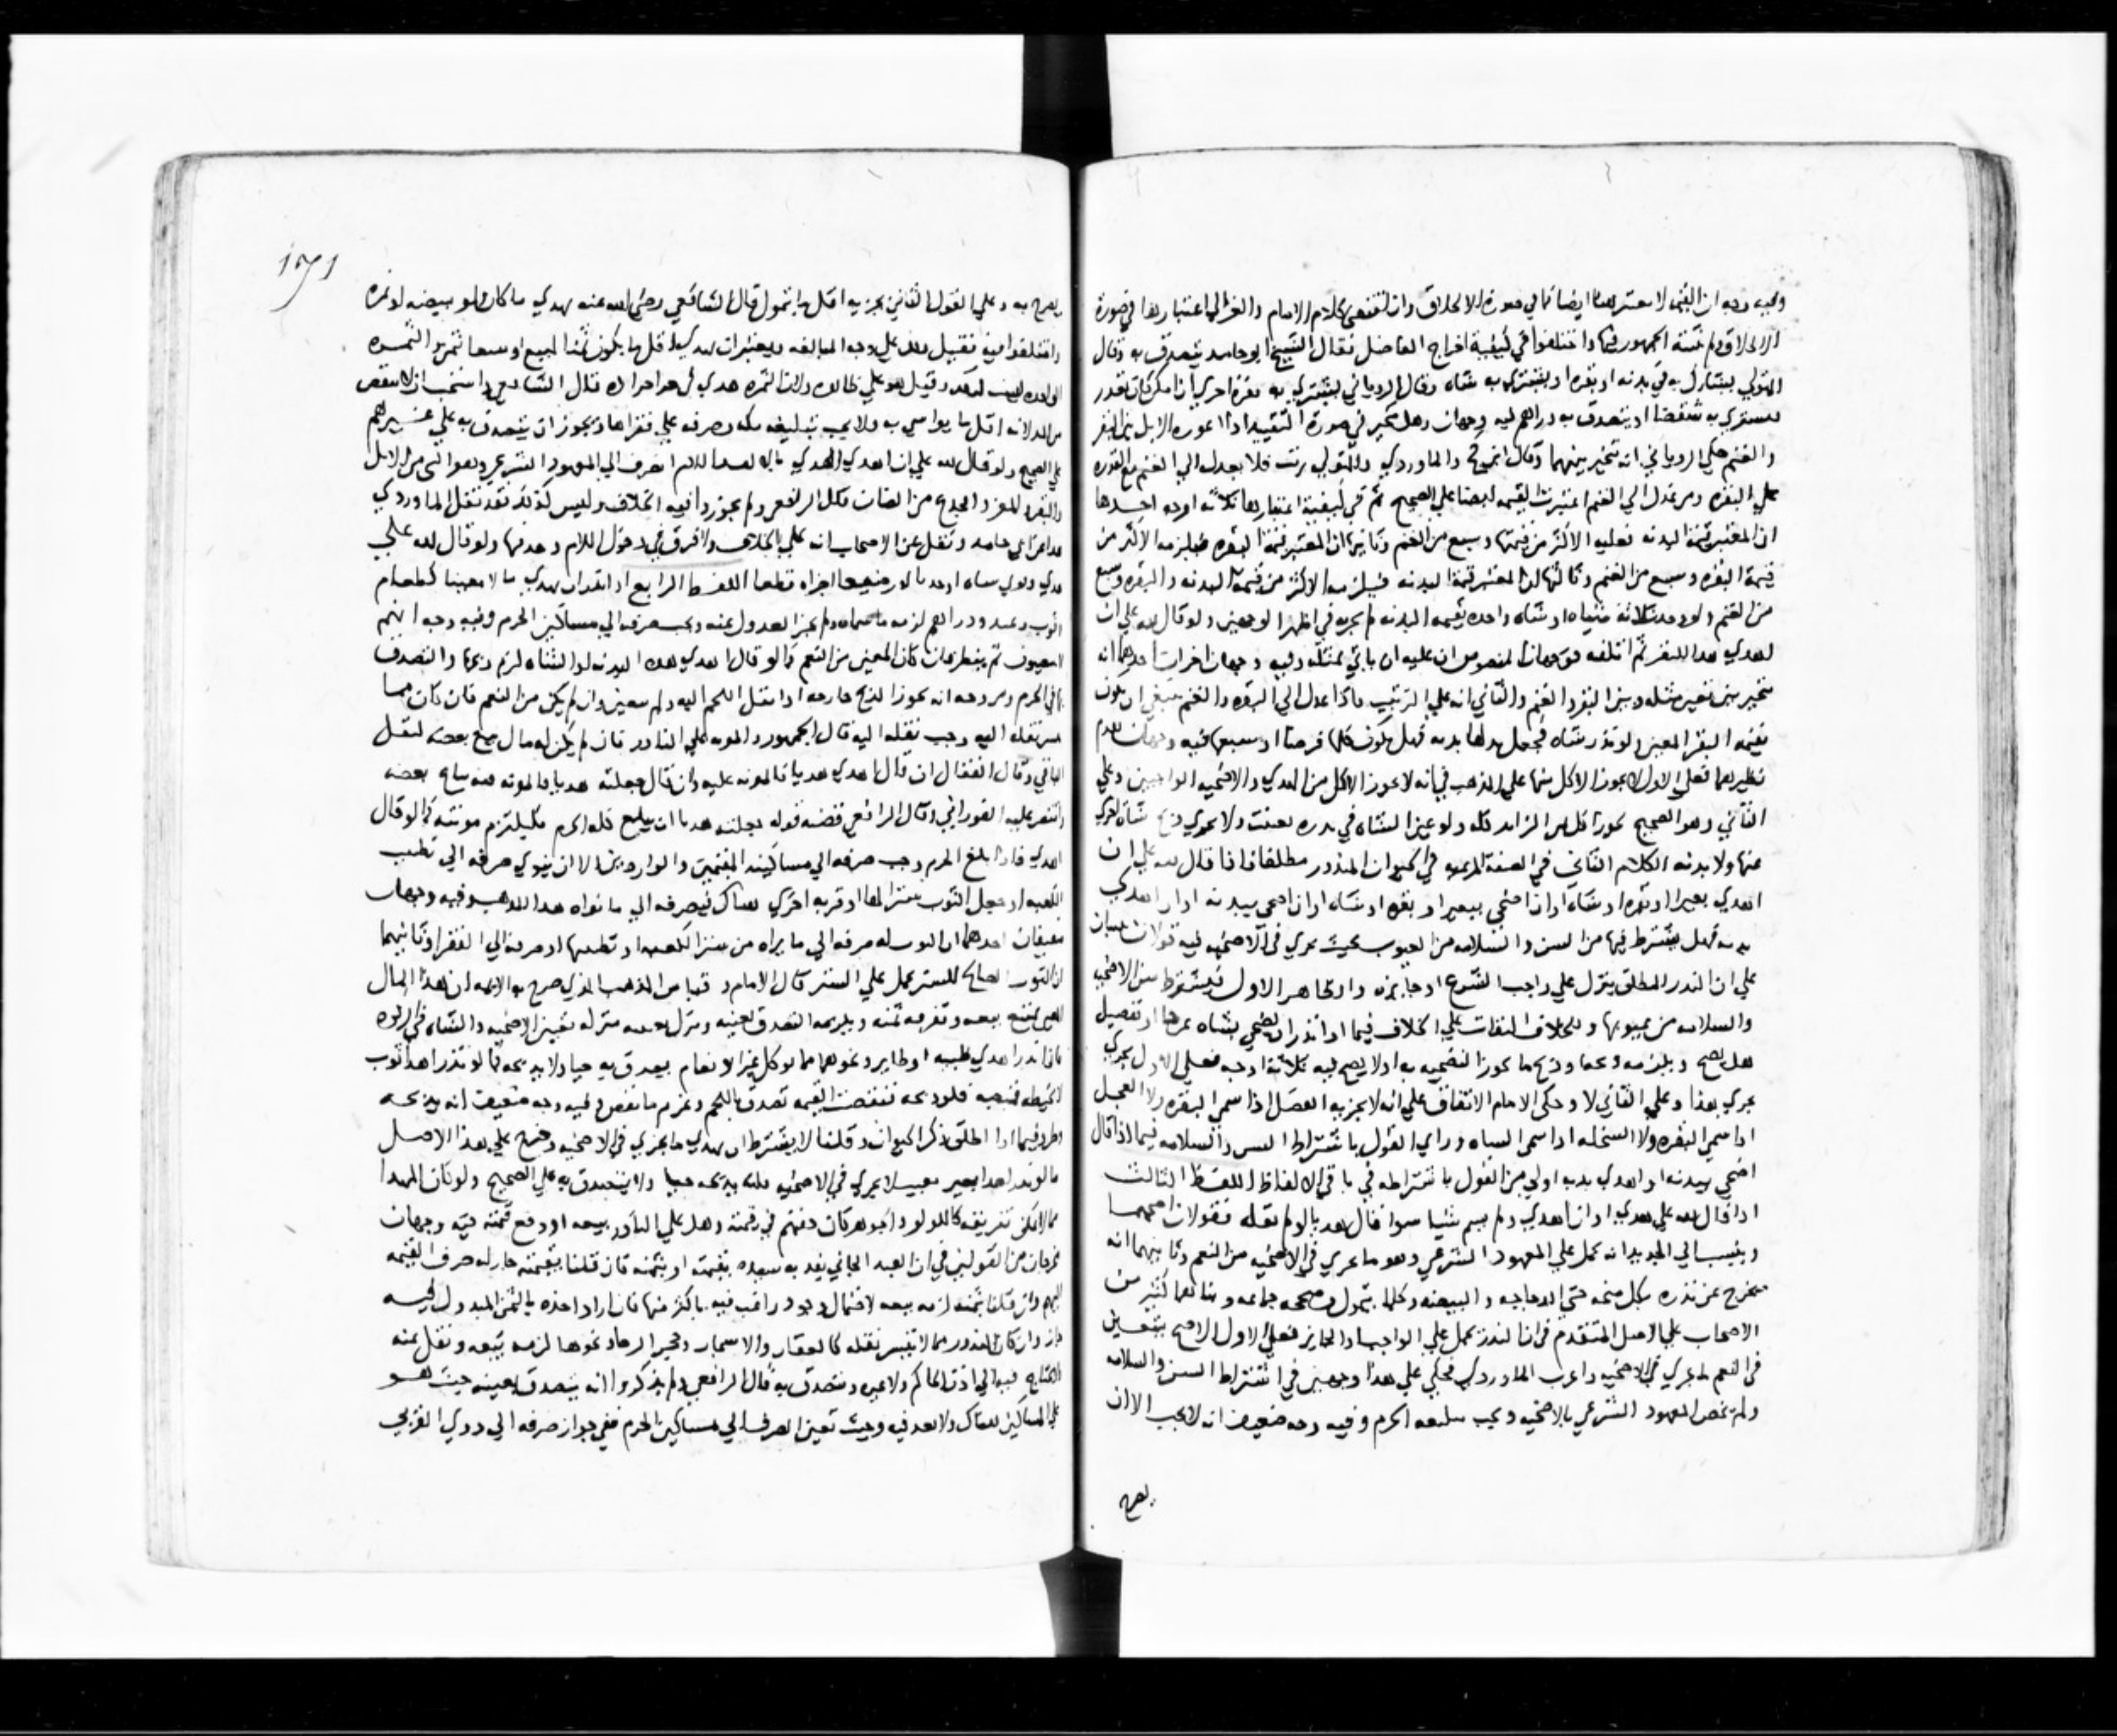 وفيه وجه ان القيمة لا معتبر بها ايضا كما في صورة الاطلاق وان اقتضى كلام الامام والغزالي اعتبارها في صورة
الاطلاق ولم يثبته الجمهور فيها واختلفوا في كيفية اخراج الفاضل فقال الشيخ ابو حامد يتصدق به وقال
المتولي يشارك به في بدنه او بقره او يشتري به شاه وقال الروياني يشتري به بقرة اخرى ان امكن كان لم يقدر
به شقصا او يتصدق به دراهم فيه وجهان وهل يتخير في صورة التقييد اذا اعوزه الابل بين البقر
والغنم حكى الروياني انه يتخير بينهما وقال والماوردي والمتولي يرتب فلا يعدل الى الغنم مع القدره
على البقره ومن عدل الى الغنم اعتبرت القيمه ايضا على الصحيح ثم في كيفية اعتبارها ثلاثه اوجه احدها
ان المعتبر قيمة البدنه فعليه الاكثر من قيمتها وسبع من الغنم وثانيها ان المعتبر قيمة البقره فيلزمه الاكثر من
قيمة البقره وسبع من الغنم وثالثها المعتبر قيمة البدنه فيلزمه الاكثر من قيمة البدنه والبقره وسبع
من الغنم ولو وجد ثلاثة شياه او شاه واحده بقيمه البدنه لم يجزيه في اظهر الوجهين ولو قال لله علي ان
اهدي هذا البقر ثم اتلفه فوجهان المنصوص ان عليه ان ياتي بمثله وفيه وجهان اخران احدهما انه
يتخير بين بقر مثله وبين البقر والغنم والثاني انه على الترتيب فاذا عدل الى البقره والغنم فينبغي ان يكون
بقيمه البقر المعين ولو نذر شاه فجعل بدلها بدنه فهل يكون كلها فرضا او سبعها فيه وجهان تقدم
نظيرهما فعلى الاول لا يجوز الاكل منها على المذهب في انه لا يجوز الاكل من الهدي والاضحيه الواجبين وعلى
الثاني وهو الصحيح يجوز اكل الزايد كله ولو عين الشاه في نذره تعينت ولا يجزي ذبح شاه اخرى
عنها ولا بدنه الكلام الثاني في الصفة المرعيه في الحيوان المنذور مطلقا فاذا قال لله علي ان
اهدي بعيرا او بقره او شاه او ان اضحي ببعير او بقره او شاه او ان اضحي ببدنه او ان اهدي
بدنه فهل يشترط فيها من السن والسلامه من العيوب بحيث يجزي في الاضحيه فيه قولان مبنيان
على ان النذر المطلق ينزل على واجب الشرع او جايزه والظاهر الاول فيشترط سن الاضحيه
والسلامه من عيوبها وللخلاف التفات على الخلاف فيما اذا نذر ان يضحي بشاه او تفصيل
هل يصح ويلزمه وذبح ما يجوز التضحيه به او لا يصح فيه ثلاثة اوجه فعلى الاول يجري
يجري هذا وعلى الثاني لا وحكى الامام الاتفاق على انه لا يجزيه الفصيل اذا سمى البقره ولا العجل
اذا سمى البقره ولا السخله اذا سمى الشاه وراى القول باشتراط السن والسلامه فيما اذا قال
اضحي ببدنه او اهدي بدنه اولى من القول باشتراطه في باقي الالفاظ اللفظ الثالث
اذا قال لله علي هدي او ان اهدي ولم يسم شيئا سوا قال هديا او لم يقله فقولان اصحهما
وينسب الى الجديد انه يحمل على المعهود الشرعي وهو ما يجزي في الاضحيه من النعم وثانيهما انه
يخرج عن نذره بكل منحه حتى الدجاجه والبيضه وكلما يتمول وصححه جماعه وبناهما كثير من
الاصحاب على الاصل المتقدم في ان النذر يحمل على الواجب او الجايز فعلى الاول الاصح يتعين
في النعم ما يجزي في الاضحيه واغرب الماوردي فحكى على هذا وجهين في اشتراط السن والسلامه
ولم يخص المعهود الشرعي بالاضحيه ويجب تبليغه الحرم وفيه وجه ضعيف انه لا يجب الا ان
يصرح

يصرح به وعلى القول الثاني يجزيه اقل ما يتمول قال الشافعي رضي الله عنه يهدي ما كان ولو بيضه او تمره
واختلفوا فيه فقيل ذلك على وجه المبالغه ويعتبر ان يهدي اقل ما يكون ثمنا لمبيع او وسعا ثمن التمره
الواحده ليست كذلك وقيل هو على ظاهره ولان التمره هدي في جزا جراده قال الشافعي واستحب ان لا ينقص
من لانه اقل ما يواسي به ولا يجب تبليغه مكه وصرفه على فقراها ويجوز ان يتصدق به على غيرهم
على الصحيح ولو قال لله علي ان اهدي الهدي بالالف واللام انصرف الى المعهود الشرعي وهو الثني من الابل
والبقر والمعز والجذع من الضان قال الرافعي ولم يجوزوا فيه الخلاف وليس كذلك فقد نقل الماوردي
هذا عن ابي حامد ونقل عن الاصحاب انه على الخلاف والافرق في دخول اللام وعدمها ولو قال لله علي
هدي ونوى شاه او جديا او رضيعا اجزاه قطعا اللفظ الرابع اذا نذر ان يهدي مالا معينا كطعام
وثوب وعبد ودراهم لزمه ما سماه ولم يجز العدول عنه ويجب صرفه الى مساكين الحرم وفيه وجه انهم لا
يتعينون ثم ينظر فان كان المعين من النعم كما لو قال اهدي هذه البدنه او الشاه لزم ذبحها والتصدق
بها في الحرم ومر وجه انه يجوز الذبح خارجه اذا نقل اللحم اليه ولم يتغير وان لم يكن من النعم فان كان مما
يتيسر نقله اليه وجب نقله اليه قال الجمهور والمونه على الناذر فان لم يكن له مال بيع بعضه لنقل
الباقي وقال القفال ان قال اهدي هديا فالمونه عليه وان قال جعلته هديا فالمونه منه يباع بعضه
واقتصر عليه الفوراني وقال الرافعي قضية قوله جعلته هديا ان يبلغ كله الحرم فليلتزم مونته كما لو قال
اهدي فاذا بلغ الحرم وجب صرفه الى مساكينه المقيمين والواردين الا ان ينوي صرفه الى تطييب
الكعبه او جعل الثوب سترا لها او قربه اخرى هناك فيصرفه الى ما نواه هذا المذهب وفيه وجهان
ضعيفان احدهما ان الثوب له صرفه الى ما يراه من ستر الكعبه او تطييبها او صرفه الى الفقرا وثانيهما
ان الثوب الصالح للستر يحمل على الستر قال الامام وقياس المذهب الذي صرح به الايمه ان هذا المال
المعين يمتنع بيعه وتفرقه ثمنه ويلزمه التصدق بعينه وينزل تعيينه منزله تعيين الاضحيه والشاه في الزكوه
فاذا نذر اهدي ظبيه او طاير ونحوهما مما يوكل غير الانعام يتصدق به حيا ولا يذبحه كما لو نذر اهدا ثوب
لا يخيطه قميصا فلو ذبحه فنقصت القيمه تصدق باللحم وغرم ما نقص وفيه وجه ضعيف انه يذبحه
وطرد فيما اذا اطلق ذكر الحيوان وقلنا لا يشترط ان يهدي ما يجزي في الاضحيه وخرج على هذا الاصل
ما لو نذر اهدا بعير معيب لا يجزي في الاضحيه فانه يذبحه حيا ولا يتصدق به على الصحيح ولو كان المهدا
مما لا يمكن تفريقه كاللولو والجوهر كان دفعتهم في قيمته وهل على الناذر بيعه او دفع قيمته فيه وجهان
مخرجان من القولين في ان العبد الجاني يفديه سيده بقيمته او بثمنه فان قلنا بقيمته جاز له صرف القيمه
اليهم وان قلنا بثمنه لزمه بيعه لاحتمال وجود راغب فيه باكثر منها فان اراد اخذه بالثمن المبذول فيه
جاز وان كان المنذور مما لا يتيسر نقله كالعقار والاشجار وحجر الرحا ونحوها لزمه بيعه ونقل ثمنه
ولا يحتاج فيه الى اذن الحاكم ولا غيره ويتصدق به قال الرافعي ولم يذكروا انه يتصدق بعينه حيث هو
على المساكين هناك ولا بعد فيه وحيث تعين الصرف الى مساكين الحرم ففي جواز صرفه الى ذوي القربى